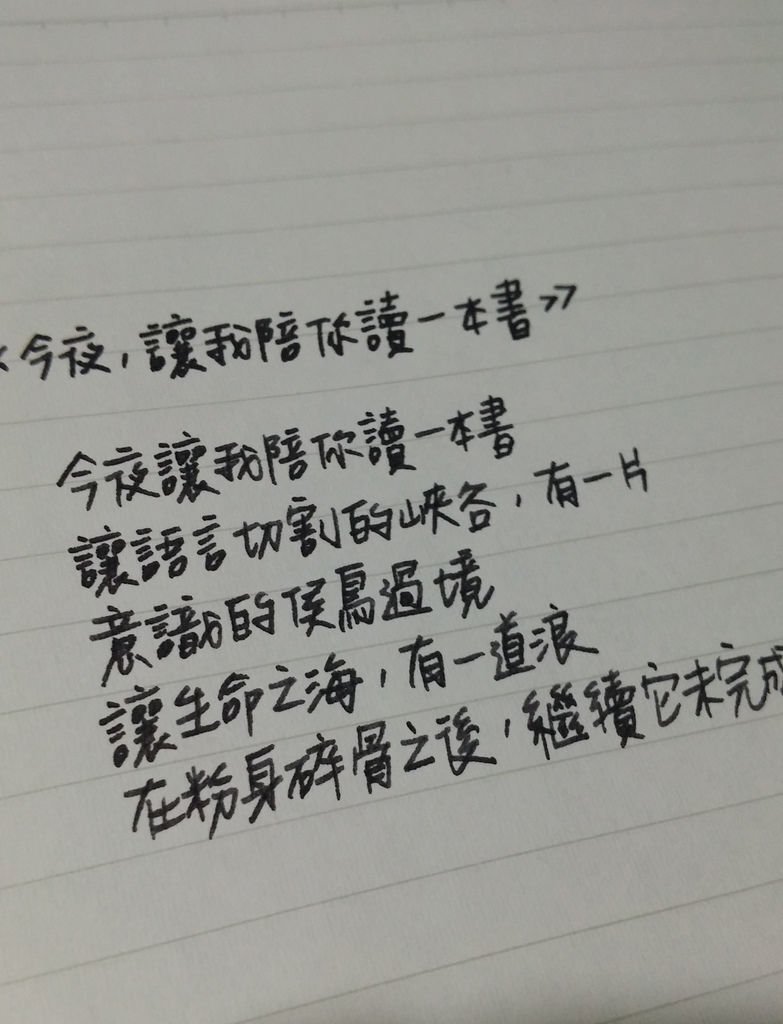 《今夜，讓我陪你讀一本書》
今夜讓我陪你讀一本書
讓語言切割的峽谷，有一片
意識的侯鳥過境
讓生命之海，有一道浪
在粉身碎骨之後，繼續它未完成